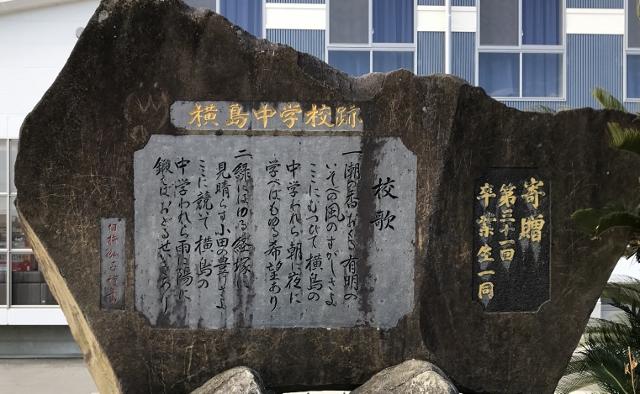 横島中学校跡
校歌
一 潮の香おくる有明の
いそべの風のすがしさよ
ここにむつびて横島の
中学われら朝に夜に
学べばもゆる希望あり
二 緑にはゆる経塚に
見晴らす小田の豊けさよ
ここに競いて横島の
中学われら雨に陽に
鍛えばおどるせいきあり
寄贈
第三十一回
卒業生一同